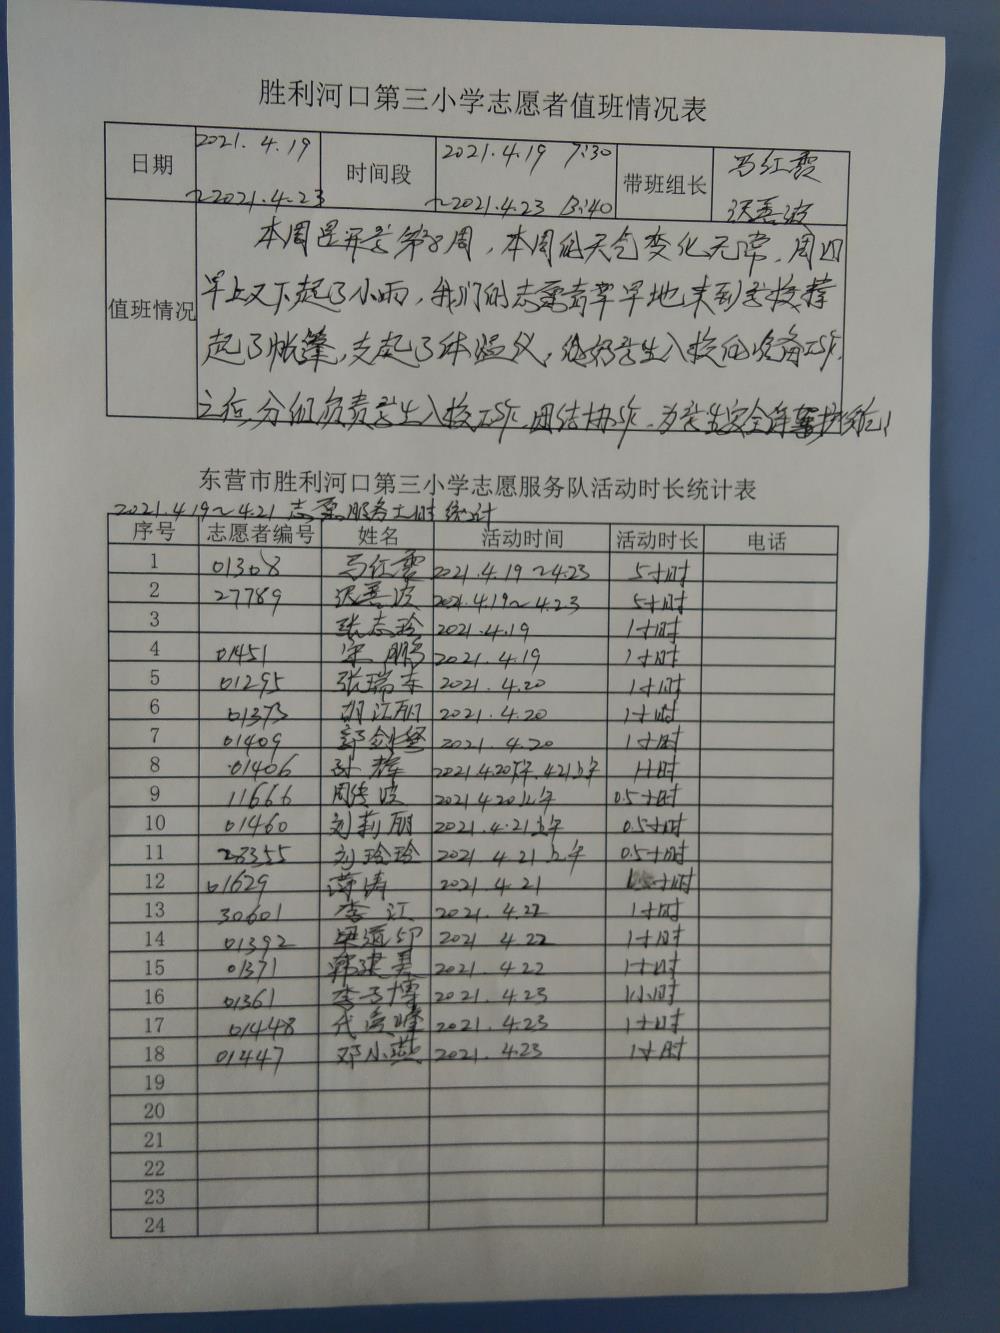 胜利河口第三小学志愿者值班情况表
日期 2021.4.19 ~2021.4.23 时间段 2021.4.19 7:30 ~2021.4.23 13:40 带班组长 马红霞 张善波
值班情况
本周是开学第8周,本周的天气变化无常,周四
早上又下起了小雨,我们的志愿者早早地来到学校撑
起了帐篷,支起了体温仪,做好学生入校的准备工作,
之后分组负责学生入校工作,团结协作,为学生安全保驾护航!
东营市胜利河口第三小学志愿服务队活动时长统计表
2021.4.19~4.21志愿服务士时统计
序号 志愿者编号 姓名 活动时间 活动时长 电话
1 01308 马红霞 2021.4.19~4.23 5小时
2 27789 张善波 2021.4.19~4.23 5小时
3 张志玲 2021.4.19 1小时
4 01451 宋鹏 2021.4.19 1小时
5 01295 张瑞东 2021.4.20 1小时
6 01373 胡江丽 2021.4.20 1小时
7 01409 2021.4.20 1小时
8 01406 孙辉 2021.4.20下午,4.21上午 1小时
9 11666 周传波 2021 4.20上午 0.5小时
10 01460 刘莉朋 2021.4.21上午 0.5小时
11 28355 刘玲玲 2021 4.21上午 0.5小时
12 01629 薄涛 2021.4.21 小时
13 30601 李江 2021.4.22 1小时
14 01392 梁道印 2021 4.22 1小时
15 01371 韩建美 2021.4.22 1小时
16 01361 李子博 2021.4.23 1小时
17 01448 代俊峰 2021.4.23 1小时
18 01447 邓小燕 2021.4.23 1小时
19
20
21
22
23
24